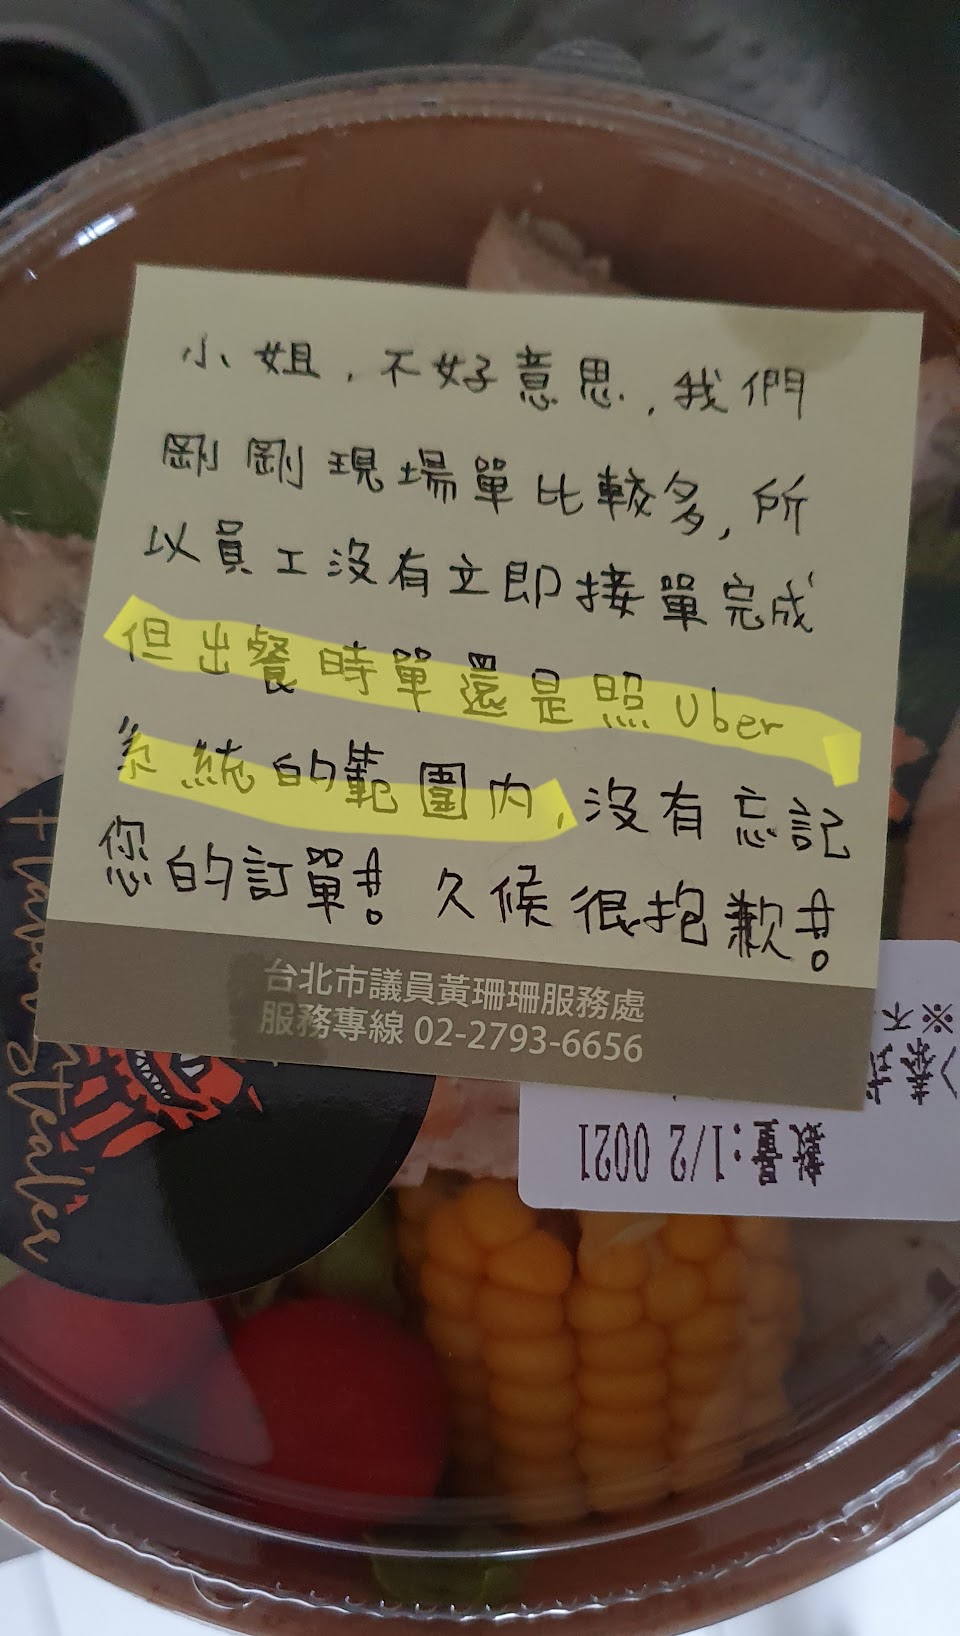 小姐，不好意思，我們
剛剛現場單比較多，所
以員工沒有立即接單完成
但出餐時單還是照Uber
系統的範圍內，沒有忘記
您的訂單!! 久候很抱歉!!
台北市議員黃珊珊服務處
服務專線 02-2793-6656
數量:1/2 0021